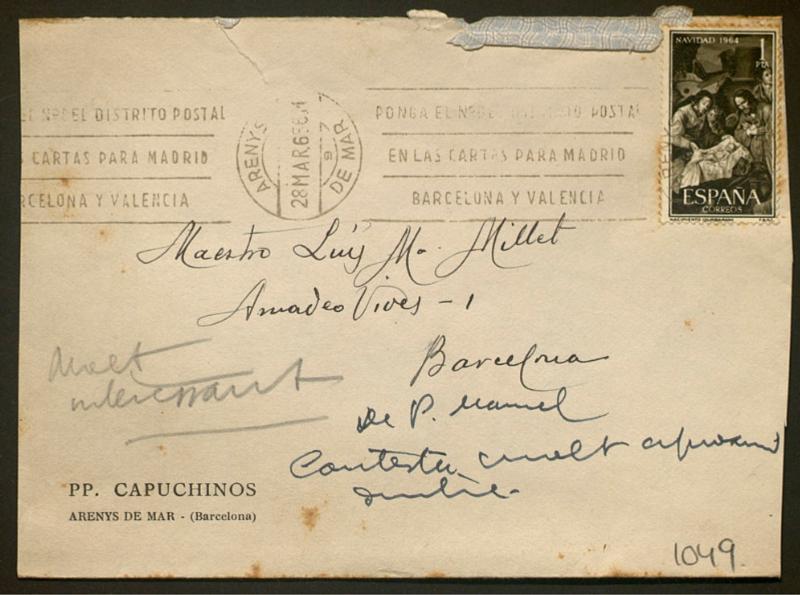 NAVIDAD 1964
1
PTA
ESPAÑA
CORREOS
EL Nº DEL DISTRITO POSTAL
CARTAS PARA MADRID
RCELONA Y VALENCIA
ARENYS DE MAR
28 MAR 65
PONGA EL Nº DEL DISTRITO POSTAL
EN LAS CARTAS PARA MADRID
BARCELONA Y VALENCIA
Maestro Luís Mª. Millet
Amadeo Vives - 1
Barcelona
De P. Manuel
Contesta molt
Molt
interessant
PP. CAPUCHINOS
ARENYS DE MAR - (Barcelona)
1049.